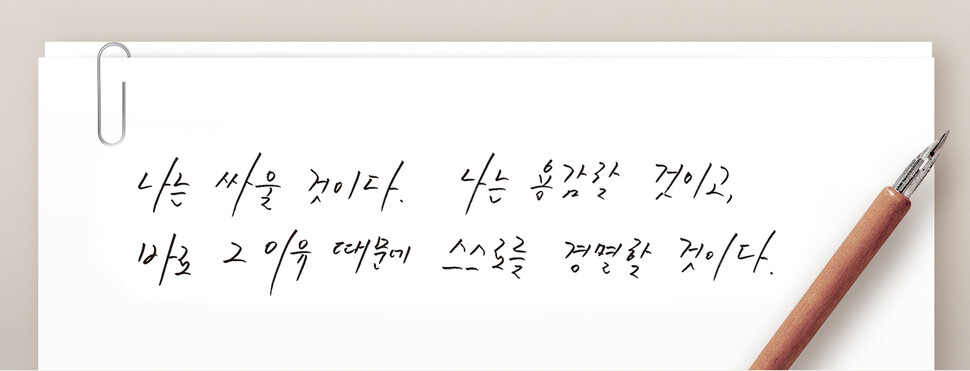 나는 싸울 것이다. 나는 용감할 것이고,
바로 그 이유 때문에 스스로를 경멸할 것이다.